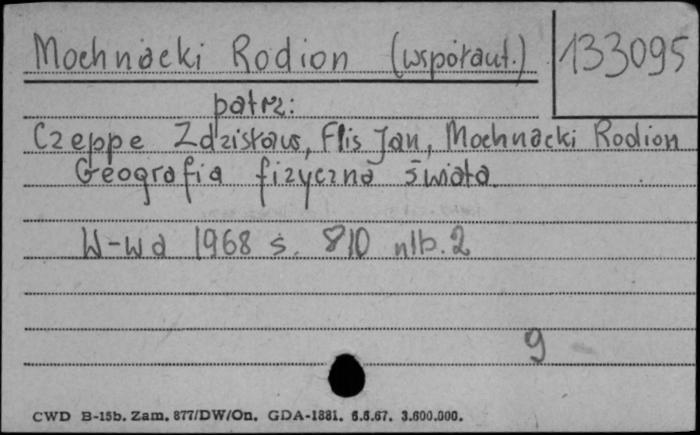 Mochnacki Rodion (współaut.) 133095
patrz:
Czeppe Zdzisław, Flis Jan, Mochnacki Rodion
Geografia fizyczna świata.
W-wa 1968 s. 810 nlb. 2
9
CWD B-15b. Zam. 877/DW/On. GDA-1881. 6.6.67. 3.600.000.